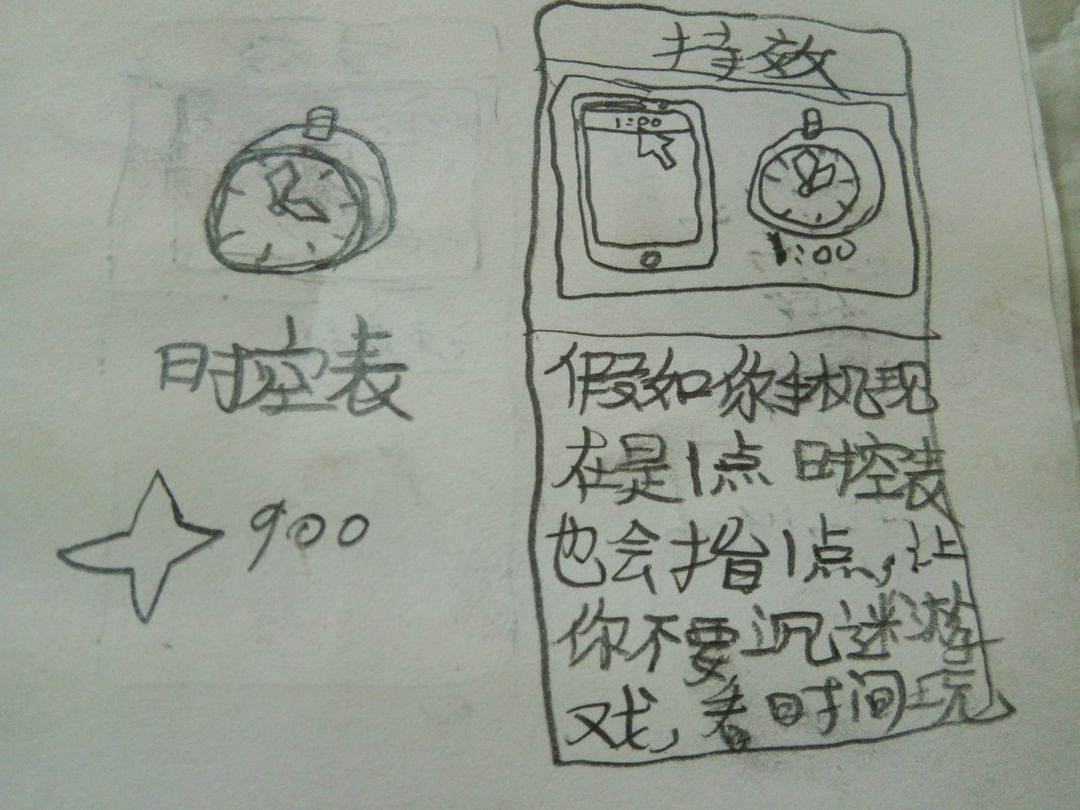 时控表
900
特效
1:00
1:00
假如你手机现
在是1点 时控表
也会指1点,让
你不要沉迷游
戏,看时间玩